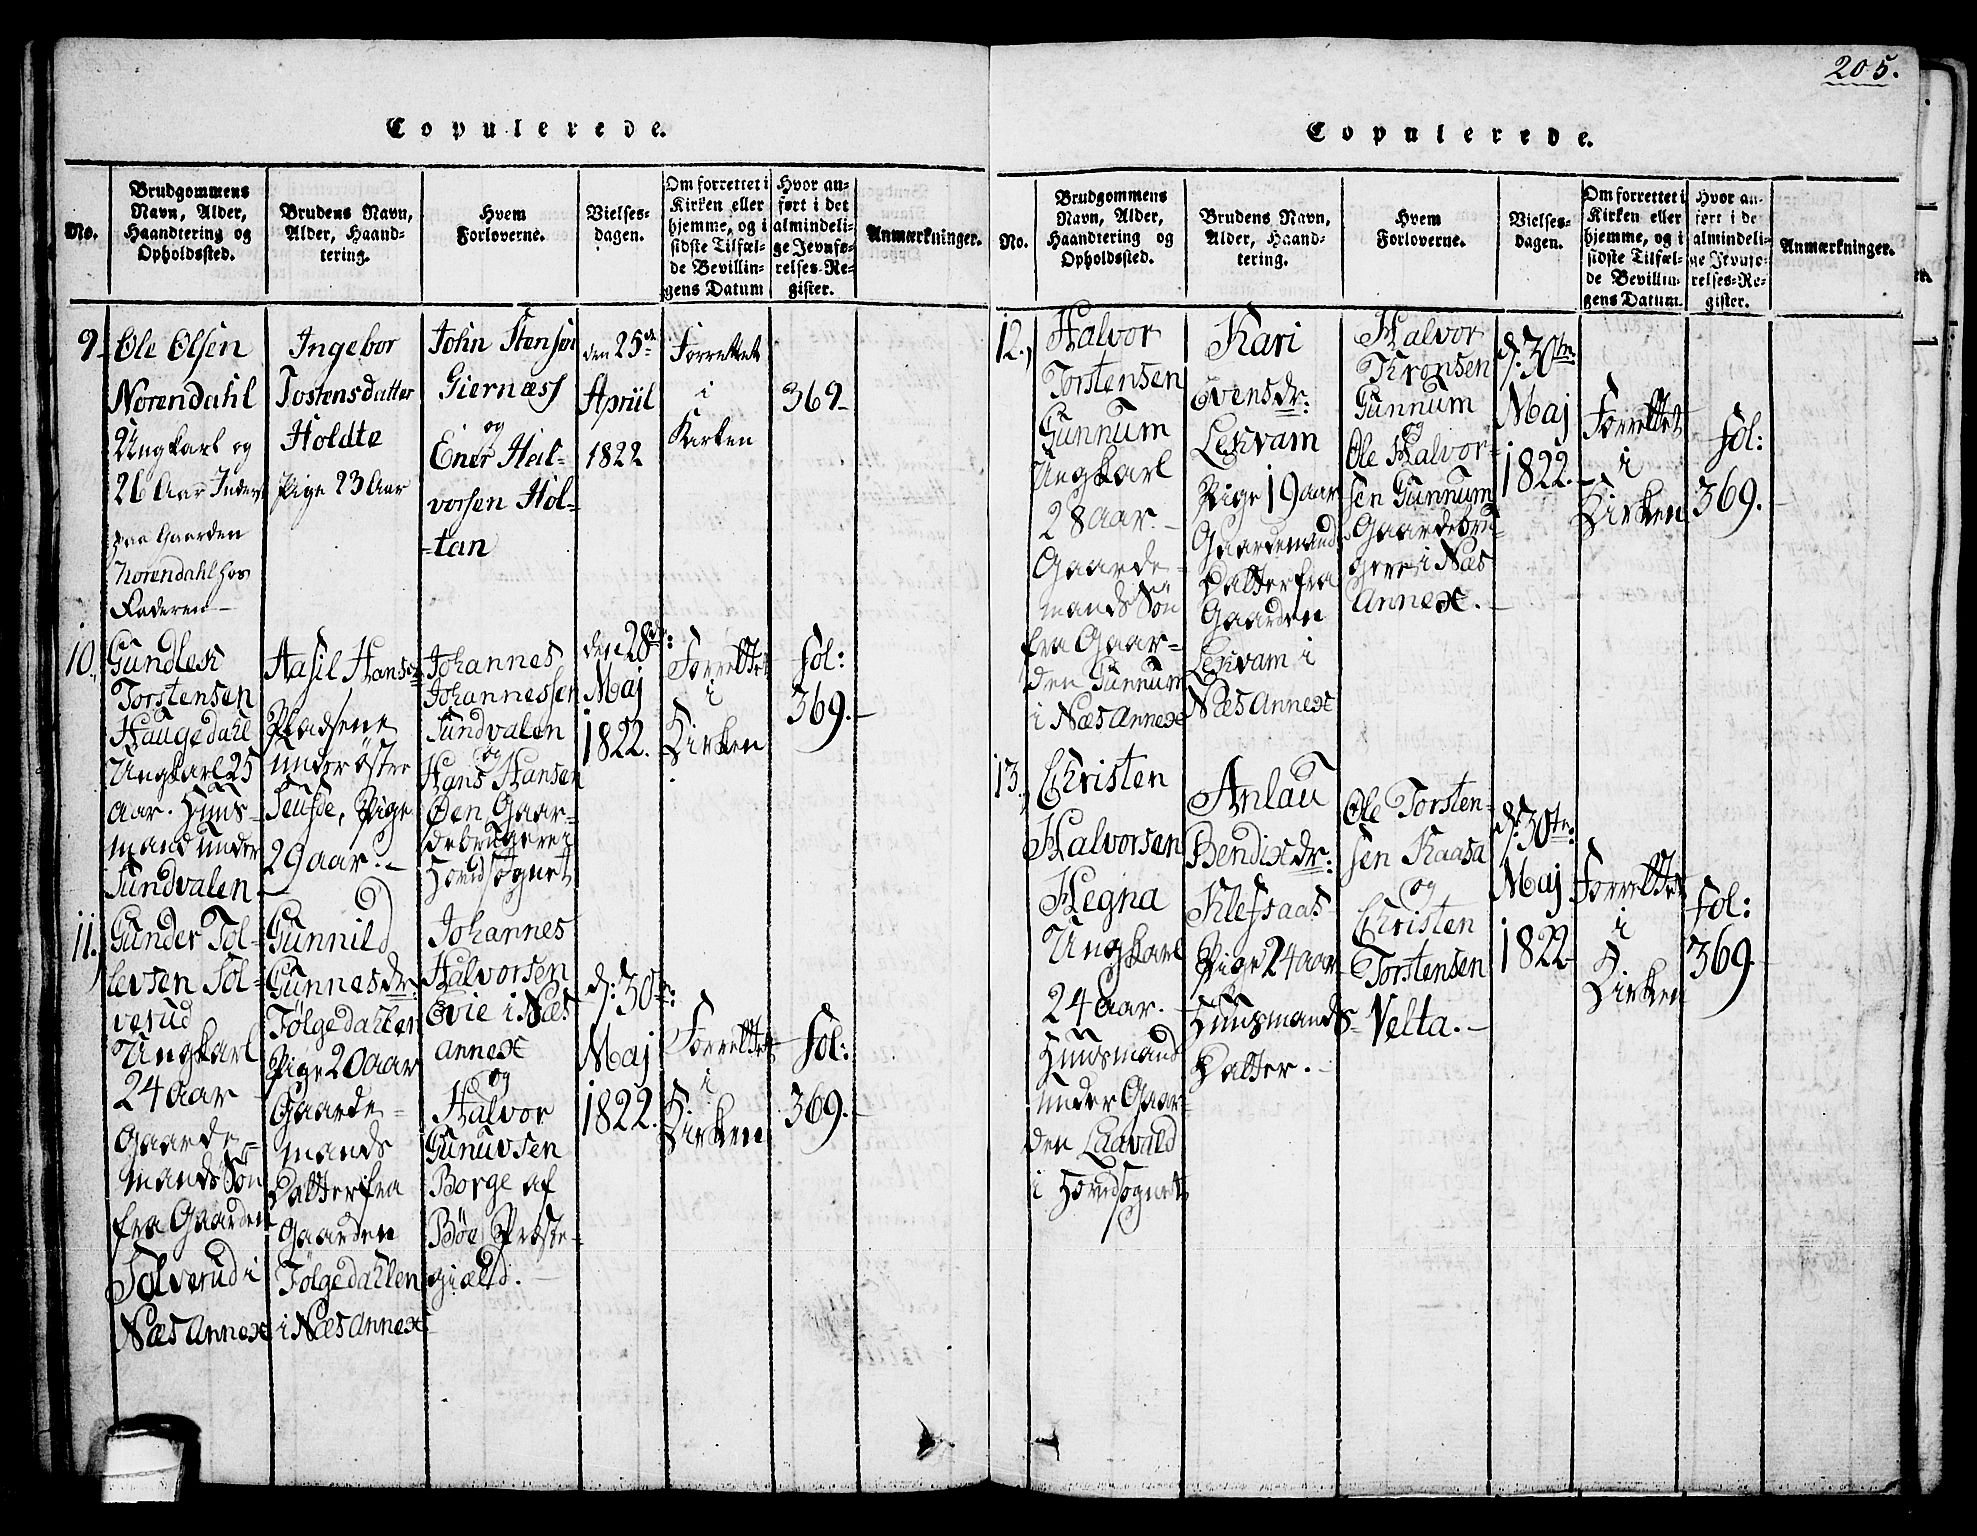 205.
Copulerede.
No.
Brudgommens
Navn, Alder,
Haandtering og
Opholdssted.
Brudens Navn,
Alder, Haand-
tering.
Hvem
Forloverne.
Vielses-
dagen.
Om forrettet i
Kirken eller
hjemme, og i
sidste Tilfæl-
de Bevillin-
gens Datum
Hvor an-
ført i det
almindeli-
ge Jevnfø-
relses-Re-
gister.
Anmærkninger.
9
Ole Olsen
Norendahl
Ungkarl og
26 Aar
paa Gaarden
Norendahl hos
Faderen
Ingebor
Tostensdatter
Holdte
Pige 23 Aar
John Stensen
Giernæss
og
Ener Hal-
vorsen Hol-
-tan
den 25de
Apriil
1822
Forrettet
i
Kirken
369
10.
Gundlek
Torstensen
Haugedahl
Ungkarl 25
aar. Huus-
mand under
Sundvalen
Aasil Hans
Pladsene
under Østre
Pige
29 aar.
Johannes
Johannessen
Sundvalen
og
Hans Hansen
Øen Gaar-
debrugere i
Hovedsognet
den 28de:
Maj
1822.
Forrettet
i
Kirken
Fol:
369.
11.
Gunder Tol-
levsen Sol-
verud
Ungkarl
24 aar
Gaarde-
mands Søn
fra Gaarden
Solverud i
Næs Annex
Gunnild
Gunnesdr:
Tølgedahlen
Pige 20 aar
Gaarde-
mands
Datter fra
Gaarden
Tølgedahlen
i Næs Annex
Johannes
Halvorsen
Evie i Næs
annex
og
Halvor
Gunuvsen
Borge af
Böe Præste-
giæld.
d: 30te:
Maj
1822.
Forrettet
i
Kirken
Fol:
369.
Copulerede.
No.
Brudgommens
Navn, Alder,
Haandtering og
Opholdssted.
Brudens Navn,
Alder, Haand-
tering.
Hvem
Forloverne.
Vielses-
dagen.
Om forrettet i
Kirken eller
hjemme, og i
sidste Tilfæl-
de Bevillin-
gens Datum.
Hvor an-
ført i de
almindeli-
ge Jevnfø-
relses-Re-
gister.
Anmærkninger.
12.
Halvor
Torstensen
Gunnum
Ungkarl
28 aar.
Gaarde-
mands Søn
fra Gaar-
den Gunnum
i Næs Annex
Kari
Evensdr:
Lekvam
Pige 19 aar
Gaardemands
Datter fra
Gaarden
Lekvam i
Næs Annex
Halvor
Kronsen
Gunnum
og
Ole Halvor-
sen Gunnum
Gaardebru-
gere i Næs
Annex.
d: 30te:
Maj
1822.
Forrettet
i
Kirken
Fol:
369.
13.
Christen
Halvorsen
Hegna
Ungkarl
24 aar.
Huusmand
under Gaar-
den Laavald
i Hovedsognet
Anlau
Bendixdr:
Klefsaas
Pige 24 aar
Huusmands-
Datter.
Ole Torsten-
sen Kaasa
og
Christen
Torstensen
Velta.
d: 30te:
Maj
1822
Forrettet
i
Kirken
Fol:
369.